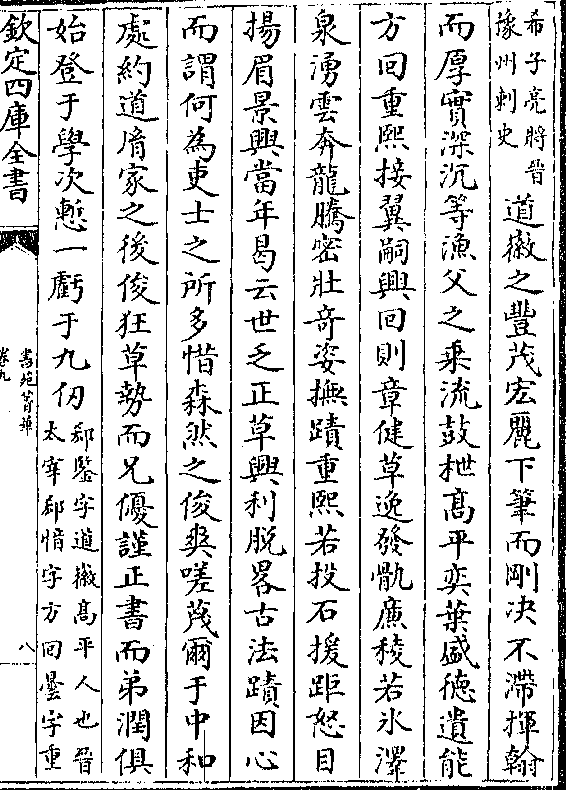 希子亮將晉
豫州刺史
道徽之豐茂宏麗下筆而剛決不滯揮翰
而厚實深沉等漁父之乘流鼓枻髙平奕葉盛徳遺能
方回重熙接翼嗣興回則章健草逸發骩廉稜若氷澤
泉湧雲奔龍騰宻壯竒姿撫蹟重熙若投石援距怒目
揚眉景興當年曷云世乏正草興利脫畧古法蹟因心
而謂何為吏士之所多惜森然之俊爽嗟薎爾于中和
處約道脩家之後俊狂草勢而兄優謹正書而弟潤俱
始登于學次慙一虧于九仞
郄鑒字道徽髙平人也晉
太宰郄愔字方回曇字重
欽定四庫全書
書苑菁華
卷九
八